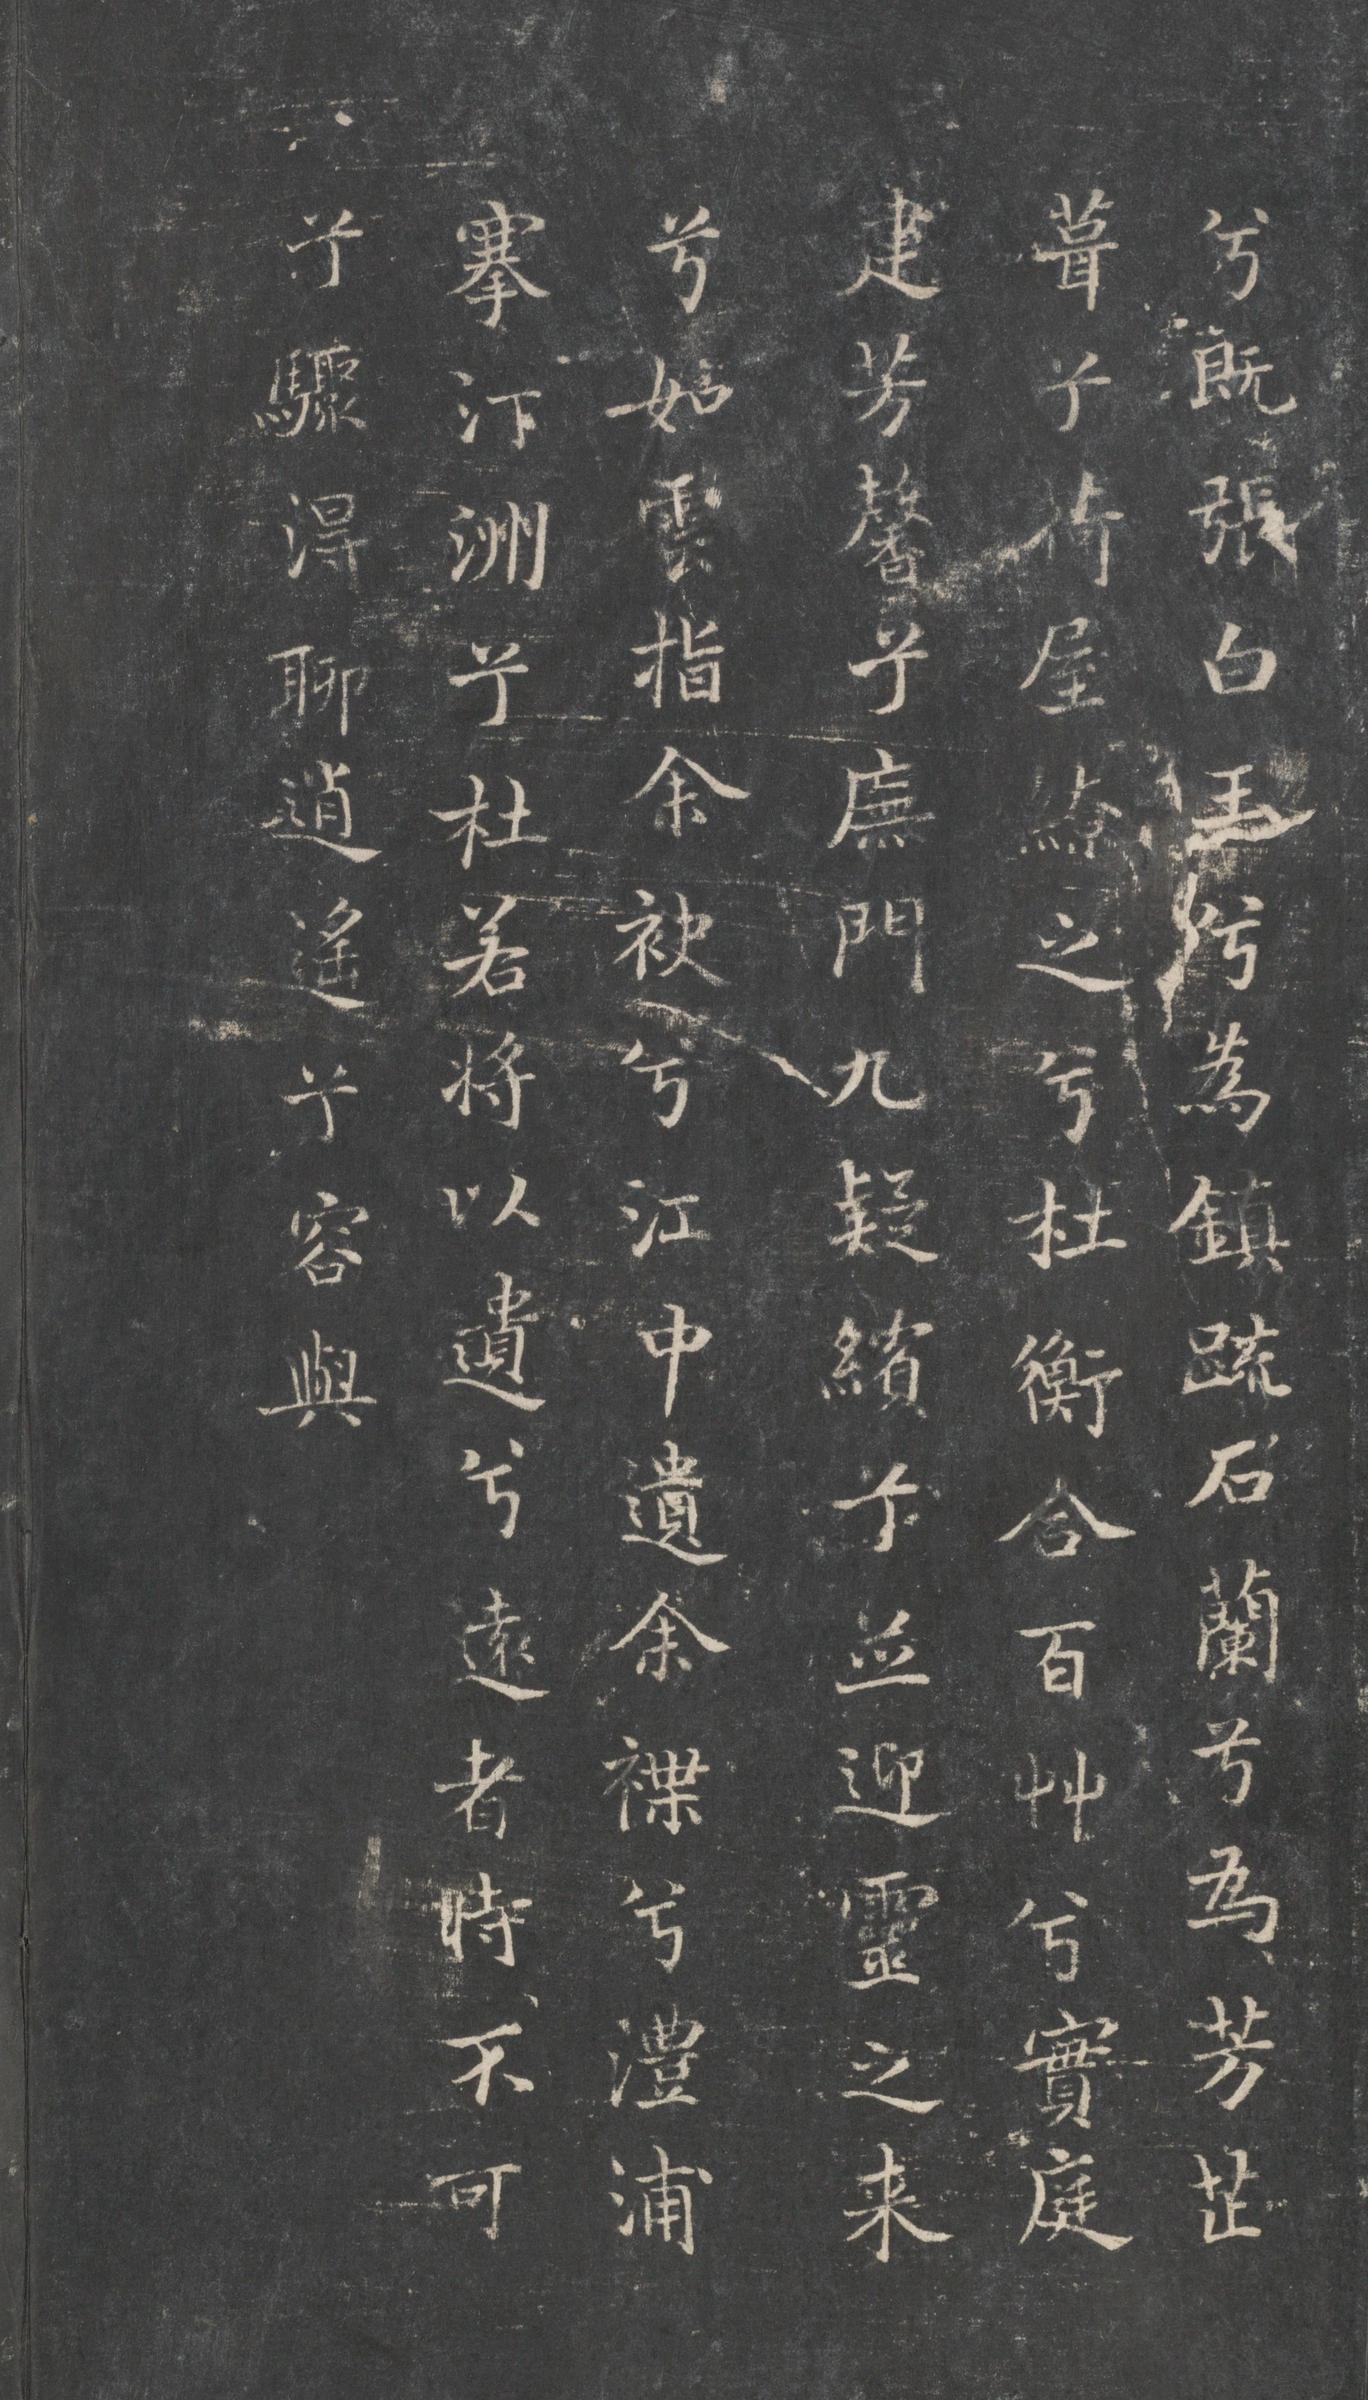 兮既張白玉兮為鎮疏石蘭兮為芳芷
葺兮荷屋繚之兮杜衡合百艸兮實庭
建芳馨兮廡門九疑繽兮並迎靈之来
兮如雲指余袂兮江中遺余褋兮澧浦
搴汀洲兮杜若将以遺兮遠者時不可
兮驟得聊逍遙兮容與